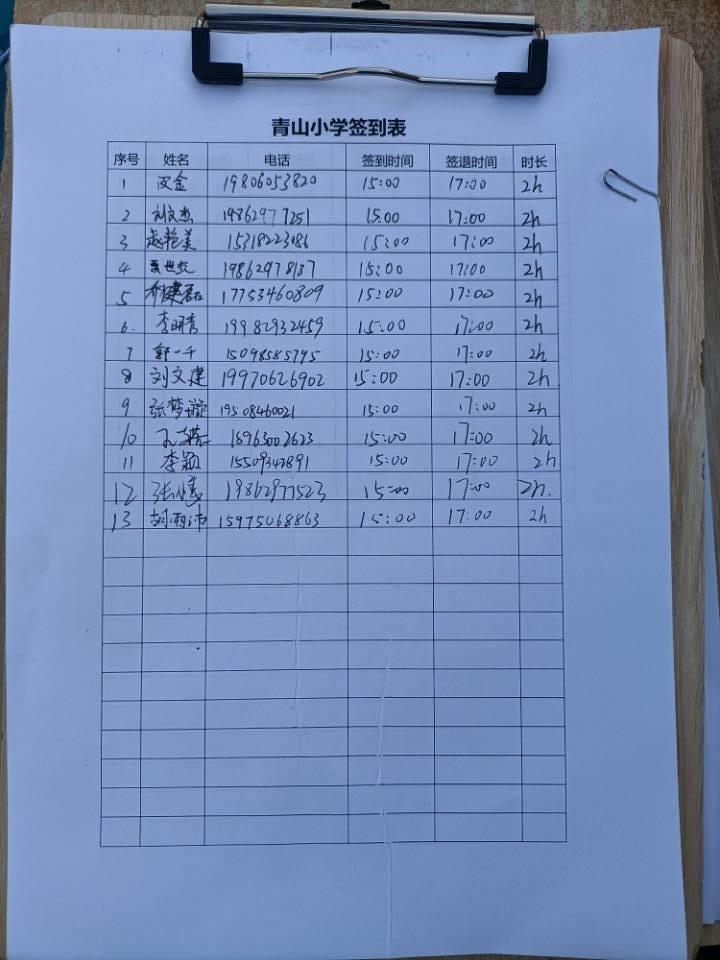 青山小学签到表
序号 姓名 电话 签到时间 签退时间 时长
1 皮金 19806053820 15:00 17:00 2h
2 刘文杰 19862977251 15:00 17:00 2h
3 赵艳美 15318223186 15:00 17:00 2h
4 19862978137 15:00 17:00 2h
5 17753460809 15:00 17:00 2h
6. 李明青 19982932459 15:00 17:00 2h
7 郭一千 15098585795 15:00 17:00 2h
8 刘文建 19970626902 15:00 17:00 2h
9 张梦璇 19508460021 15:00 17:00 2h
10 18963002623 15:00 17:00 2h
11 李颖 15509342891 15:00 17:00 2h
12 19862977523 15:00 17:00 2h.
13 胡雨沛 15975068863 15:00 17:00 2h